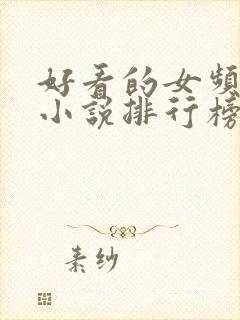 好看的女频
小说排行榜
素纱